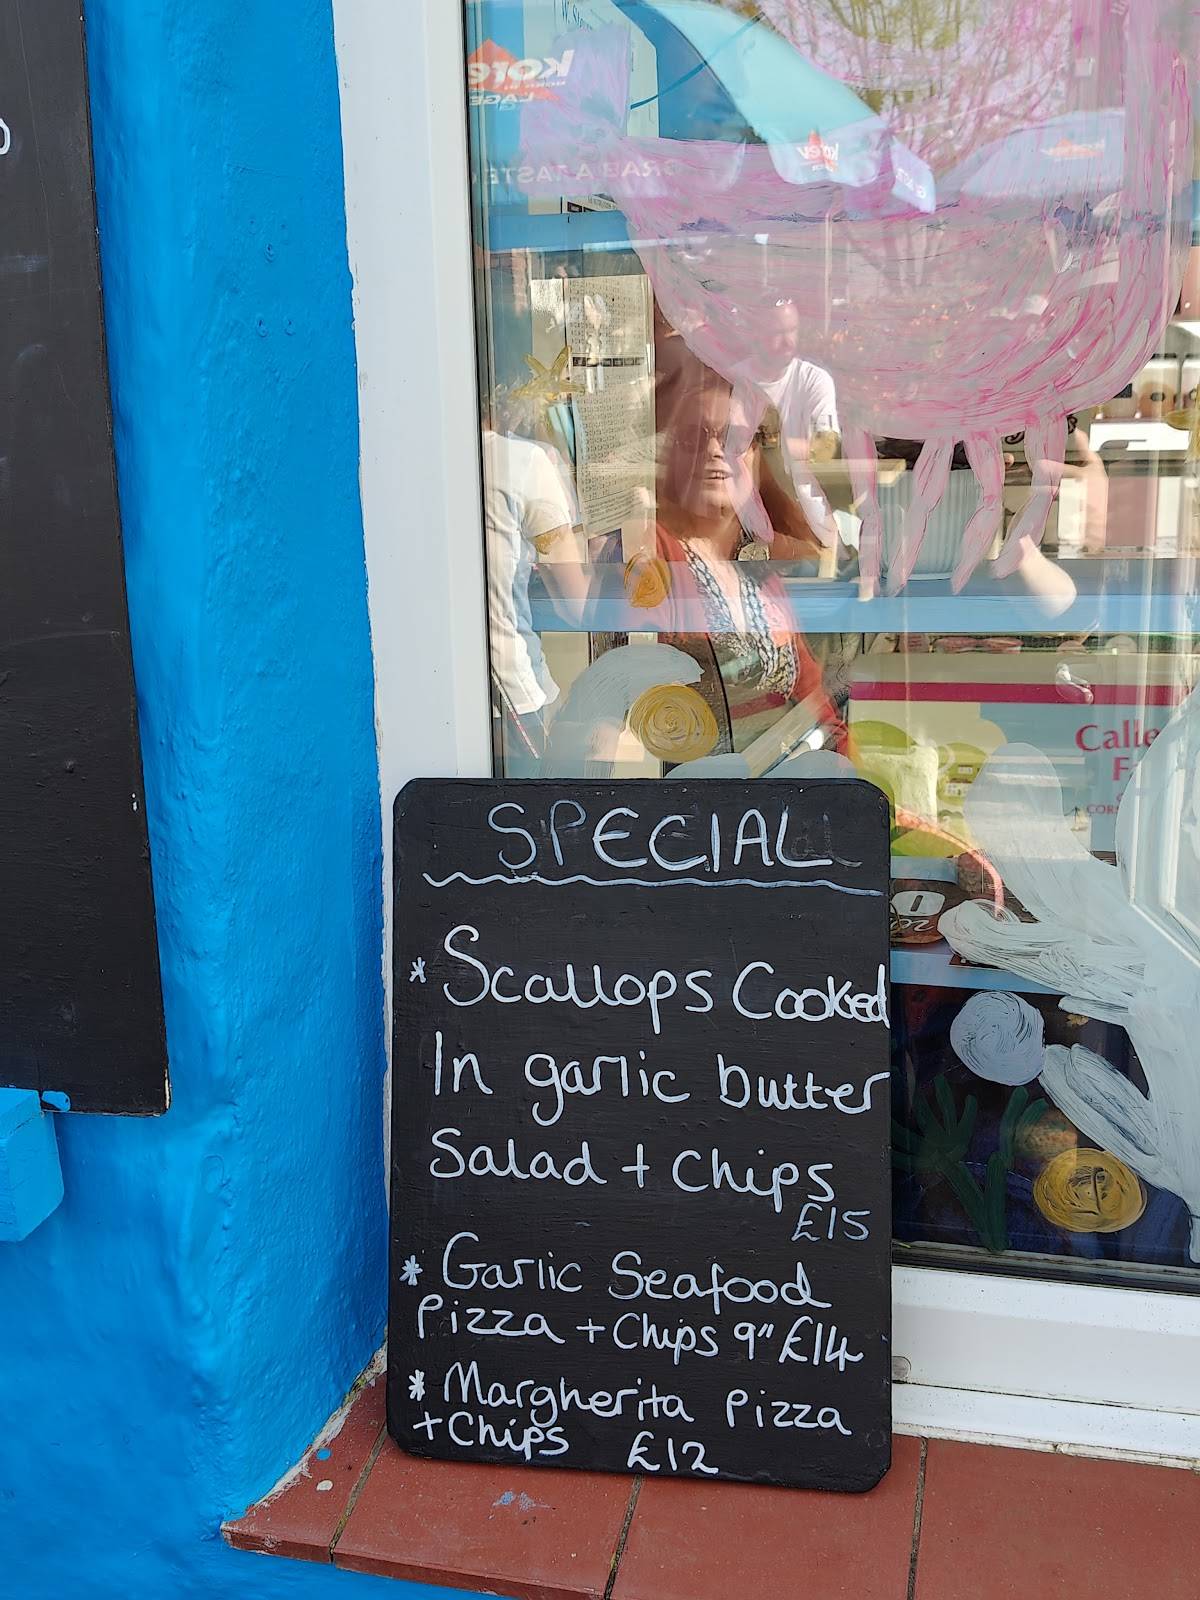 SPECIAL
* Scallops Cooked
In garlic butter
Salad + Chips
£15
* Garlic Seafood
Pizza + Chips 9" £14
* Margherita Pizza
+ Chips £12
korev
LAGER
GRAB A TASTE
korev
Calle
F